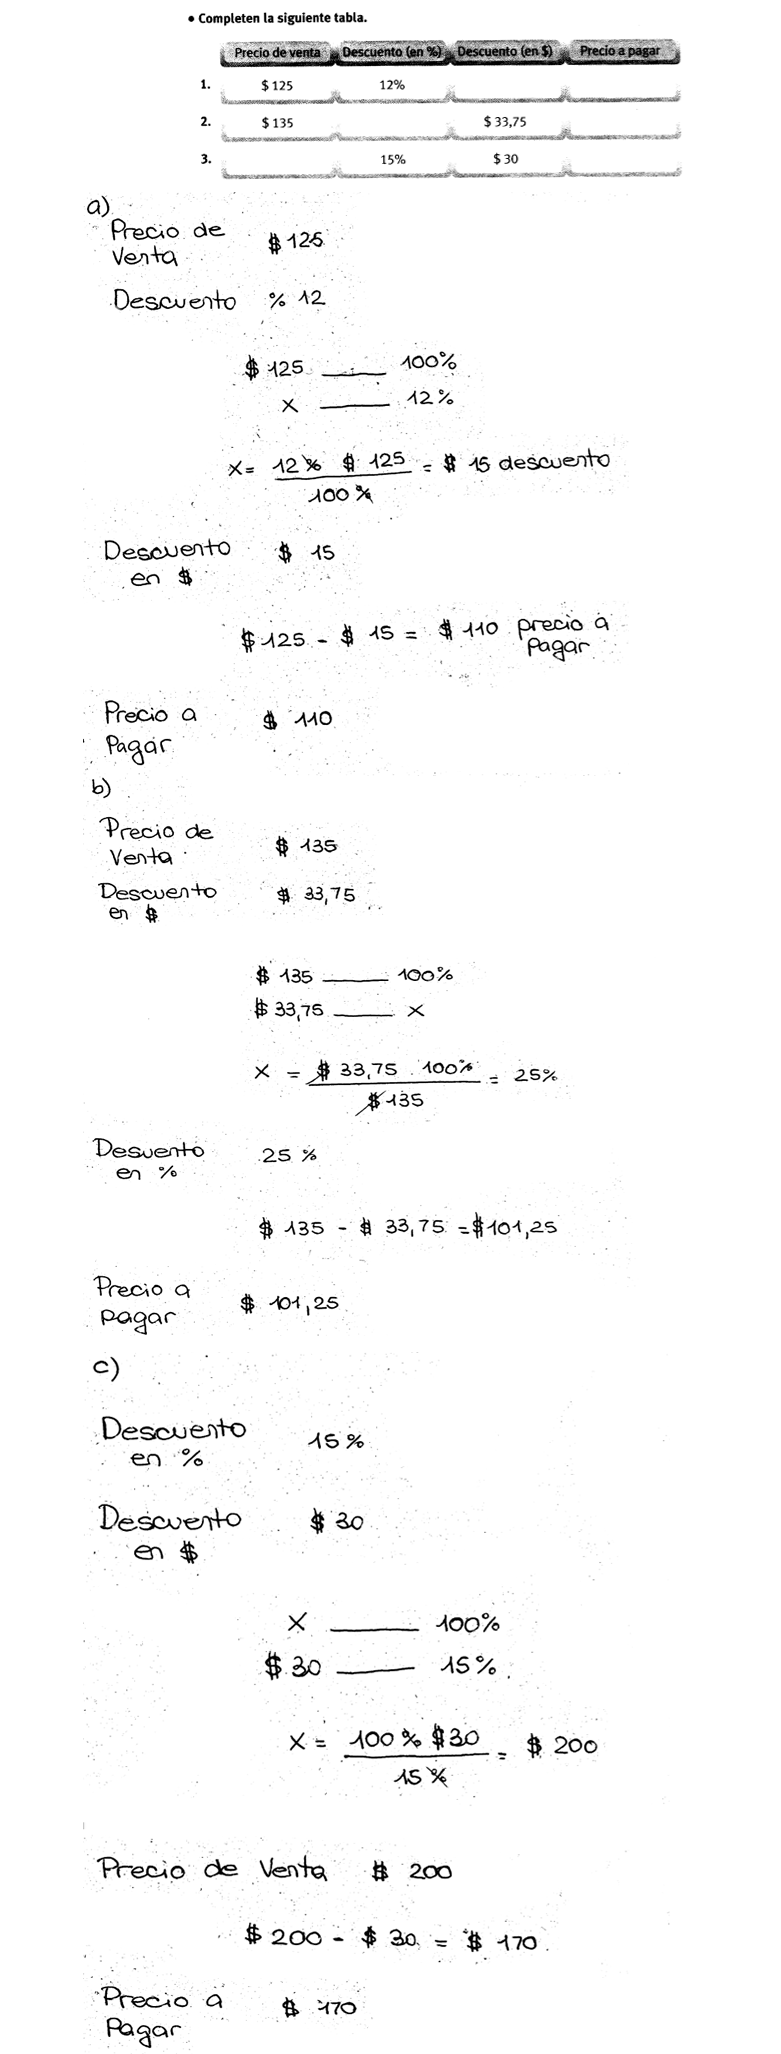 • Completen la siguiente tabla.
Precio de venta Descuento (en %) Descuento (en $) Precio a pagar
1. $ 125 12%
2. $ 135 $ 33,75
3. 15% $ 30
a)
Precio de
Venta $ 125
Descuento % 12
$ 125 ____ 100%
x ____ 12%
x = 12% $ 125 = $ 15 descuento
100 %
Descuento $ 15
en $
$ 125 - $ 15 = $ 110 precio a
Pagar
Precio a $ 110
Pagar
b)
Precio de
Venta $ 135
Descuento $ 33,75
en $
$ 135 ____ 100%
$ 33,75 ____ x
x = $ 33,75 . 100% = 25%
$ 135
Desuento 25 %
en %
$ 135 - $ 33,75 = $ 101,25
Precio a
pagar $ 101,25
c)
Descuento 15%
en %
Descuento $ 30
en $
x ____ 100%
$ 30 ____ 15%.
x = 100% $ 30 = $ 200
15 %
Precio de Venta $ 200
$ 200 - $ 30 = $ 170
Precio a $ 170
Pagar